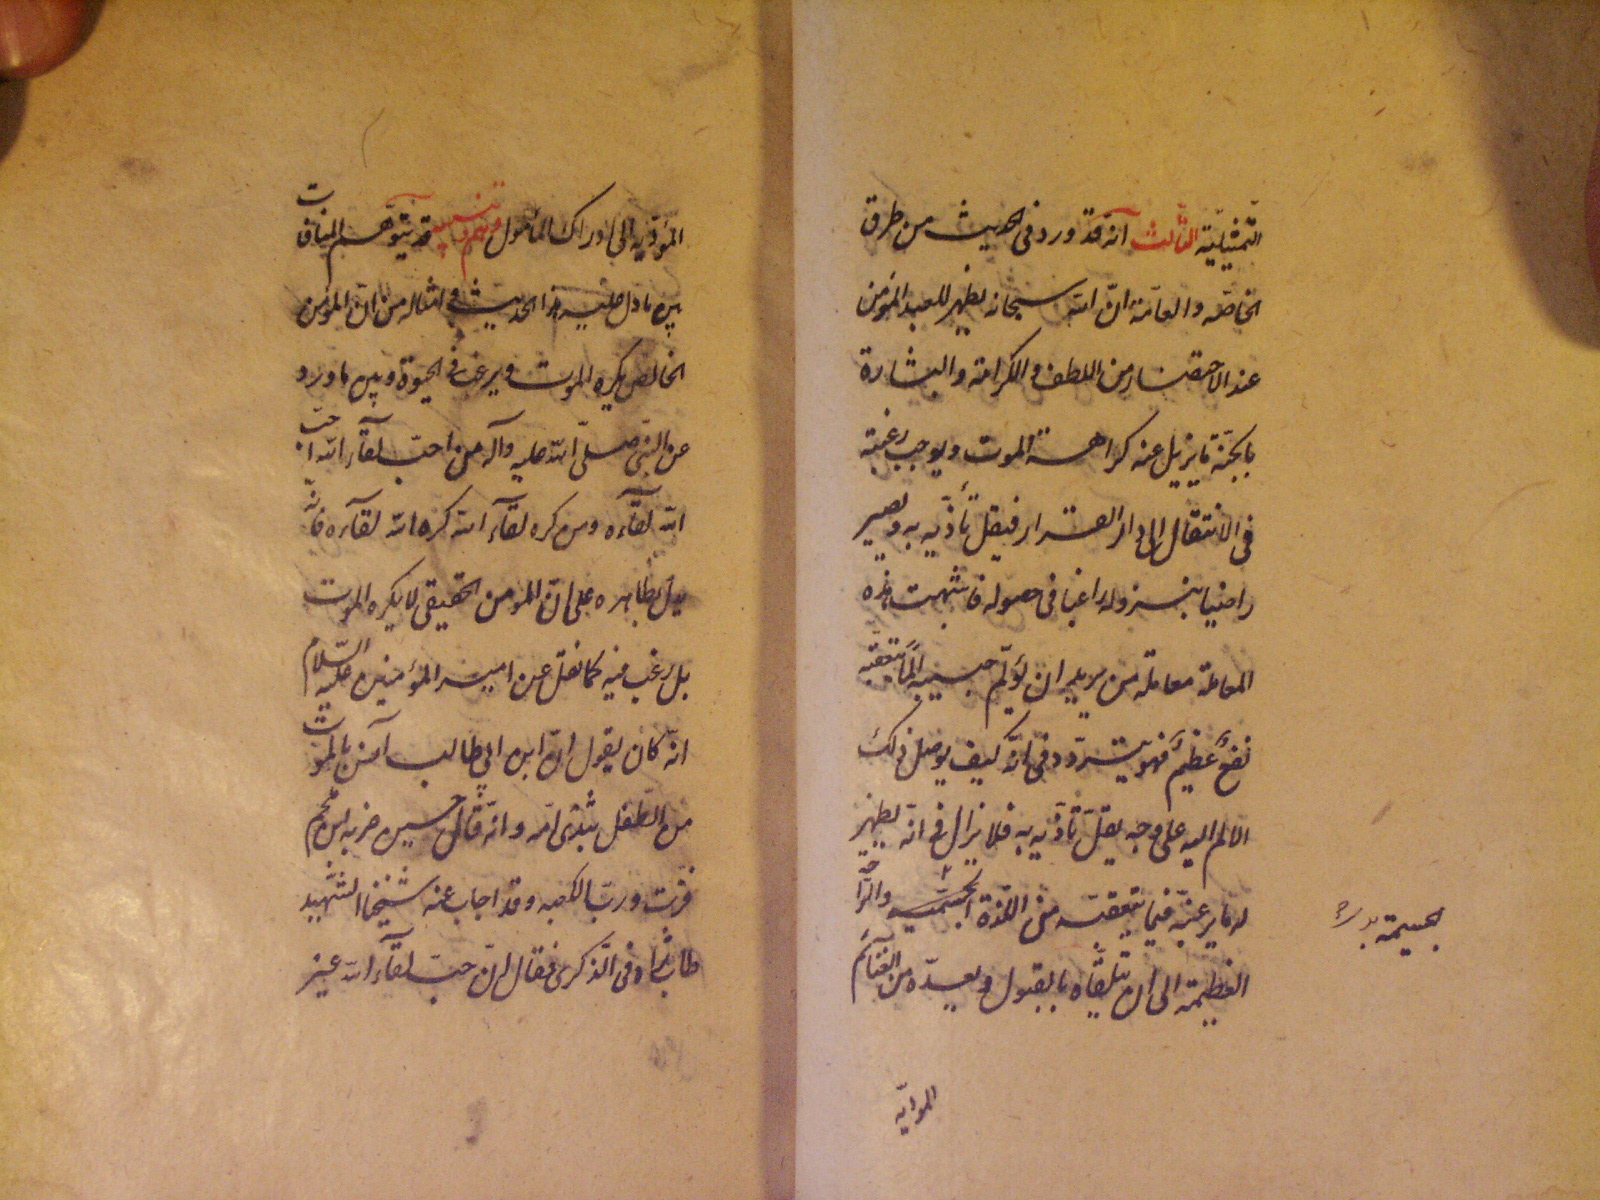 التمثيلية الثالث انه قد ورد في الحديث من طرق
الخاصة والعامة ان الله سبحانه يظهر للعبد المؤمن
عند الاحتضار من اللطف والكرامة والبشارة
بالجنة ما يزيل عنه كراهة الموت ويوجب رغبته
في الانتقال الى دار القرار فيقل تأذيه به ويصير
راضيا بنزوله راغبا في حصوله فاشبهت هذه
المعاملة معاملة من يريد ان يؤلم حبيبه ألما يتعقبه
نفع عظيم فهو يتردد في انه كيف يوصل ذلك
الالم اليه على وجه يقل تأذيه به فلا يزال في انه يظهر
له ما يرغبه فيما يتعقبه من اللذة الجسمية والراحة
العظيمة الى ان يتلقاه بالقبول ويعده من الغنائم
المؤدية
الجسيمة
المؤدية الى ادراك المأمول توهم وتنبيه قد يتوهم المنافات
بين ما دل عليه هذا الحديث في امثاله من ان المؤمن
الخالص يكره الموت ويرغب في الحيوة وبين ما ورد
عن النبي صلى الله عليه وآله من احب لقآء الله احب
الله لقآءه ومن كره لقآء الله كره الله لقآءه فانه
يدل بظاهره على ان المؤمن الحقيقي لا يكره الموت
بل يرغب فيه كما نقل عن امير المؤمنين عليه السلام
انه كان يقول ان ابن ابي طالب آنس بالموت
من الطفل بثدي امه وانه قال حين ضربه ابن ملجم
فزت ورب الكعبه وقد اجاب عنه شيخنا الشهيد
طاب ثراه في الذكرى فقال ان حب لقآء الله غير